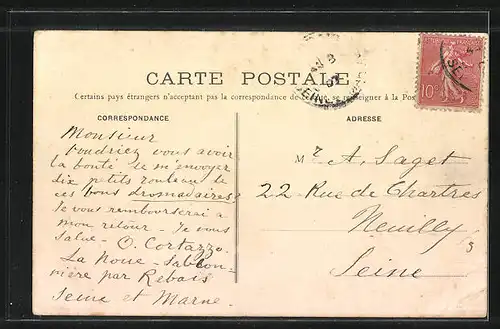 CARTE POSTALE
Certains pays étrangers n'acceptant pas la correspondance de se renseigner à la Pos
CORRESPONDANCE
ADRESSE
Monsieur
voudriez vous avoir
la bonté de m'envoyer
dix petits rouleaux de
ces bons dromadaires?
Je vous rembourserai a
mon retour - Je vous
salue - O. Cortazzo
La Noue - Sablon-
nière par Rebais
Seine et Marne
Mr A. Saget
22 Rue de Chartres
Neuilly
s
Seine
10